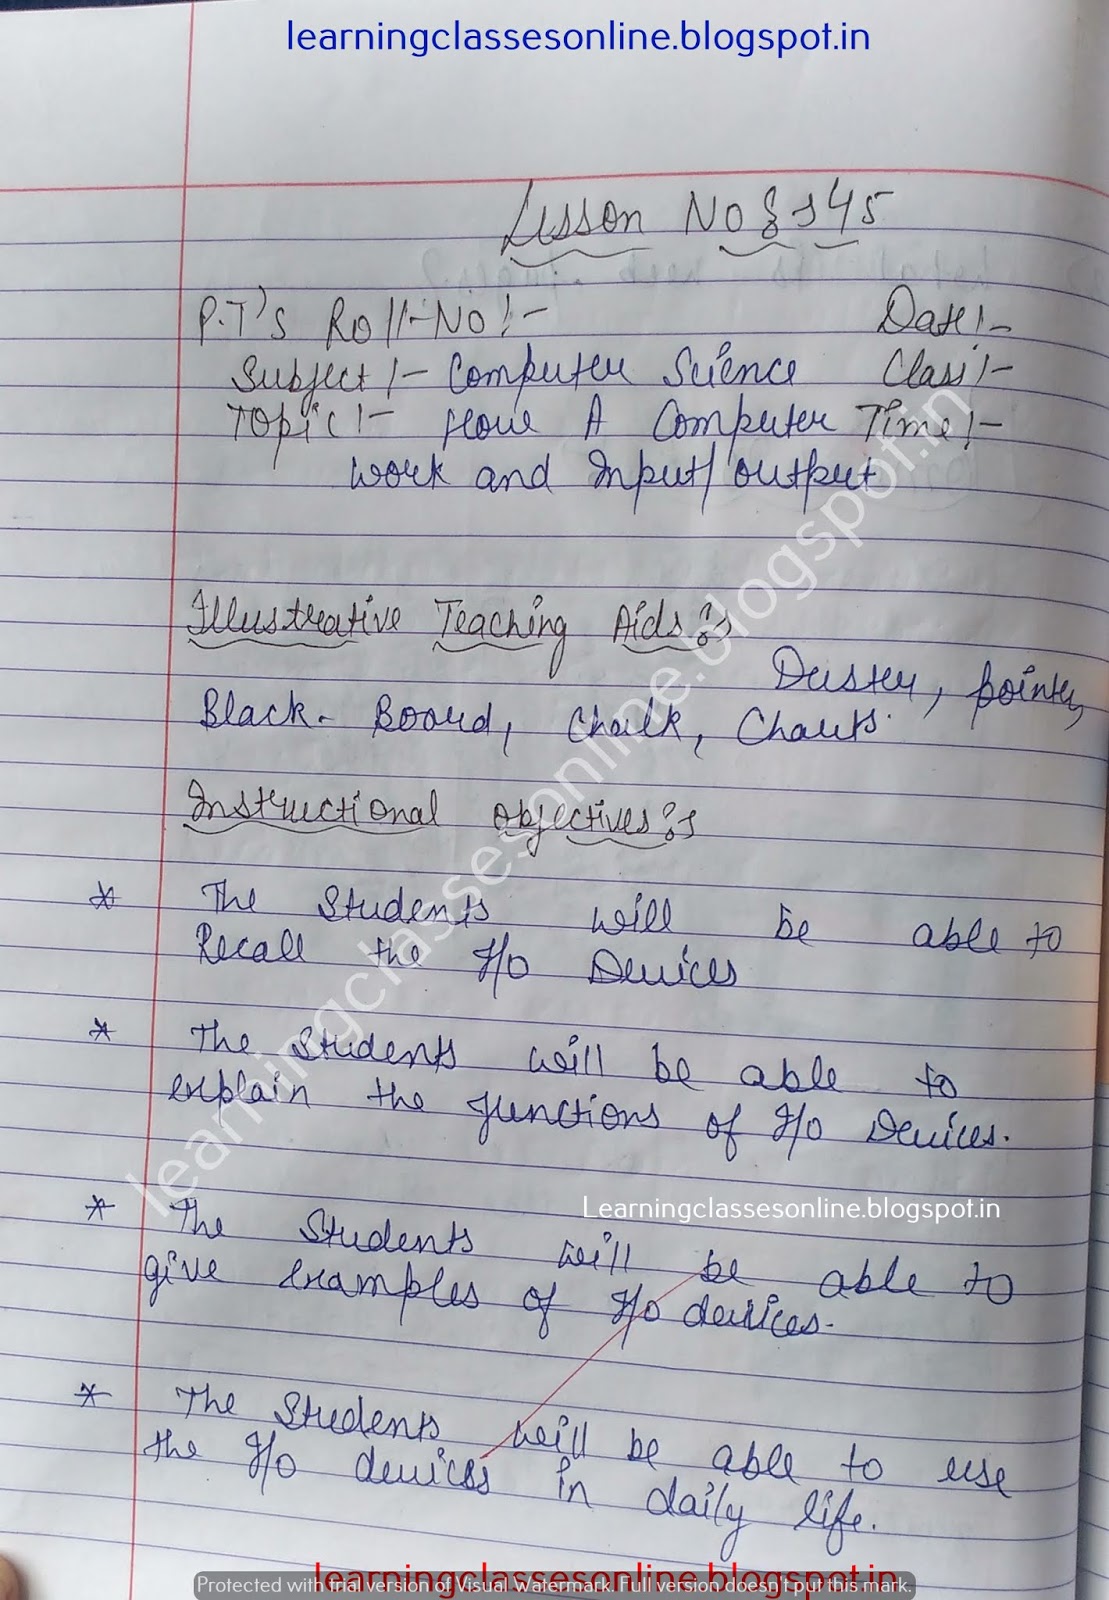 learningclassesonline.blogspot.in
Lesson No :- 45
P.T's Roll-No :- Date :-
Subject :- Computer Science Class :-
Topic :- How A Computer Time :-
Work and Input/output
Illustrative Teaching Aids :-
Duster, pointer,
Black-Board, Chalk, Charts.
Instructional objectives :-
* The Students will be able to
Recall the I/o Devices
* The Students will be able to
explain the functions of I/o Devices.
* The Students will be able to
give examples of I/o devices.
* The Students will be able to use
the I/o devices in daily life.
learningclassesonline.blogspot.in
Learningclassesonline.blogspot.in
learningclassesonline.blogspot.in
Protected with trial version of Visual Watermark. Full version doesn't put this mark.